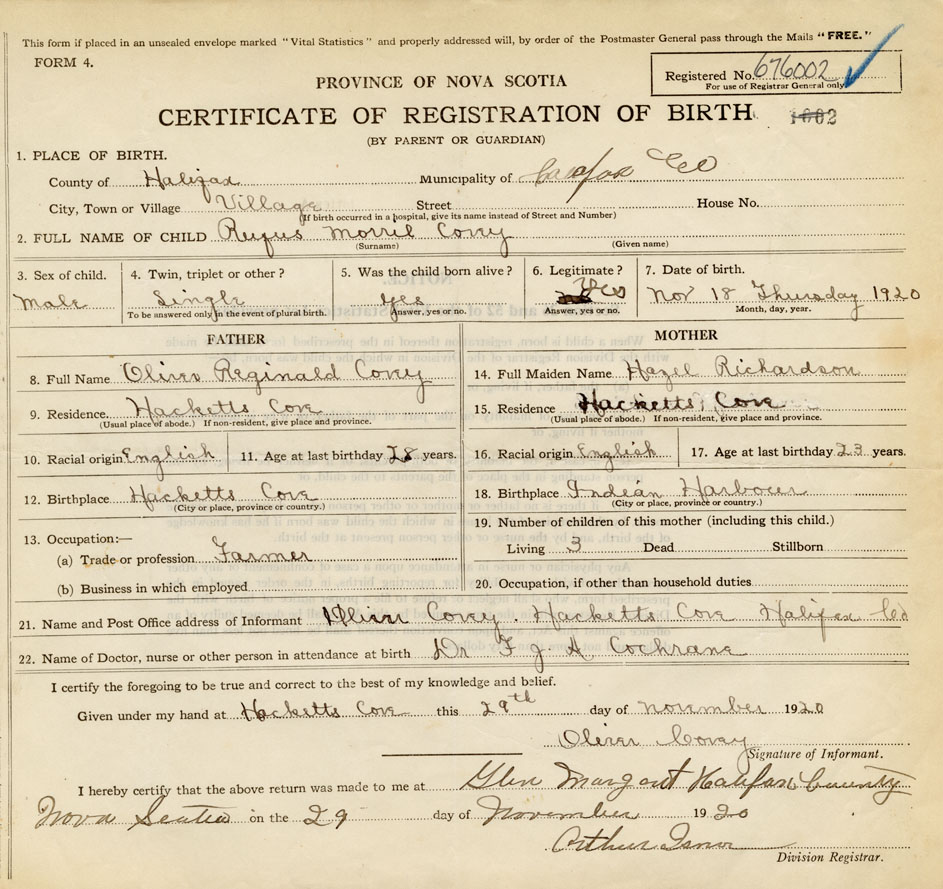 This form if placed in an unsealed envelope marked "Vital Statistics" and properly addressed will, by order of the Postmaster General pass through the Mails "FREE."
FORM 4.
Registered No. 676002
For use of Registrar General only
PROVINCE OF NOVA SCOTIA
CERTIFICATE OF REGISTRATION OF BIRTH 1602
(BY PARENT OR GUARDIAN)
1. PLACE OF BIRTH.
County of Halifax Municipality of Halifax Co
City, Town or Village Village Street House No.
(If birth occurred in a hospital, give its name instead of Street and Number)
2. FULL NAME OF CHILD Rufus Morril Covey
(Surname) (Given name)
3. Sex of child. 4. Twin, triplet or other? 5. Was the child born alive? 6. Legitimate? 7. Date of birth.
Male Single yes Yes Nov 18 Thursday 1920
To be answered only in the event of plural birth. Answer, yes or no. Answer, yes or no. Month, day, year.
FATHER MOTHER
8. Full Name Oliver Reginald Covey 14. Full Maiden Name Hazel Richardson
9. Residence. Hacketts Cove 15. Residence Hacketts, Cove
(Usual place of abode.) If non-resident, give place and province. (Usual place of abode.) If non-resident, give place and province.
10. Racial origin English 11. Age at last birthday 28 years. 16. Racial origin English 17. Age at last birthday 23 years.
12. Birthplace Hacketts Cove 18. Birthplace Indian Harbour
(City or place, province or country.) (City or place, province or country.)
13. Occupation:— 19. Number of children of this mother (including this child.)
(a) Trade or profession Farmer Living 3 Dead Stillborn
(b) Business in which employed 20. Occupation, if other than household duties
21. Name and Post Office address of Informant Oliver Covey. Hacketts Cove Halifax Co
22. Name of Doctor, nurse or other person in attendance at birth Dr F J A Cochrane
I certify the foregoing to be true and correct to the best of my knowledge and belief.
Given under my hand at Hacketts Cove this 29th day of November 1920
Oliver Covey
Signature of Informant.
I hereby certify that the above return was made to me at Glen Margaret Halifax County
Nova Scotia on the 29 day of November 1920
Arthur Isnor
Division Registrar.